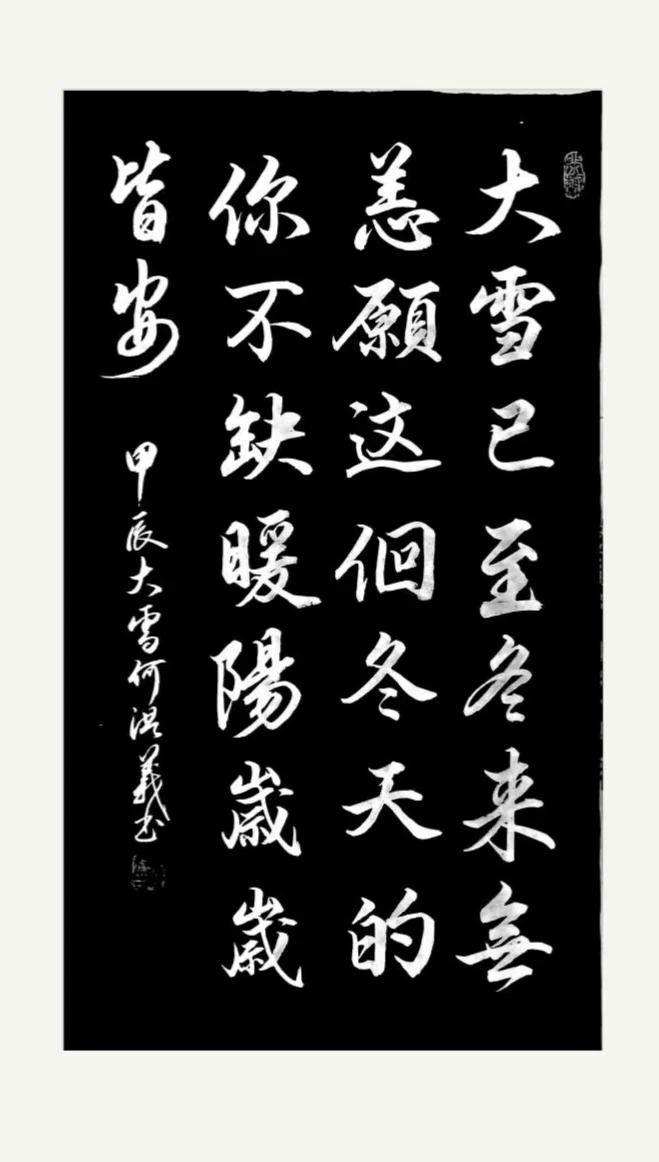 大雪已至冬来無
恙願这個冬天的
你不缺暖陽歲歲
皆安
甲辰大雪何洪義书